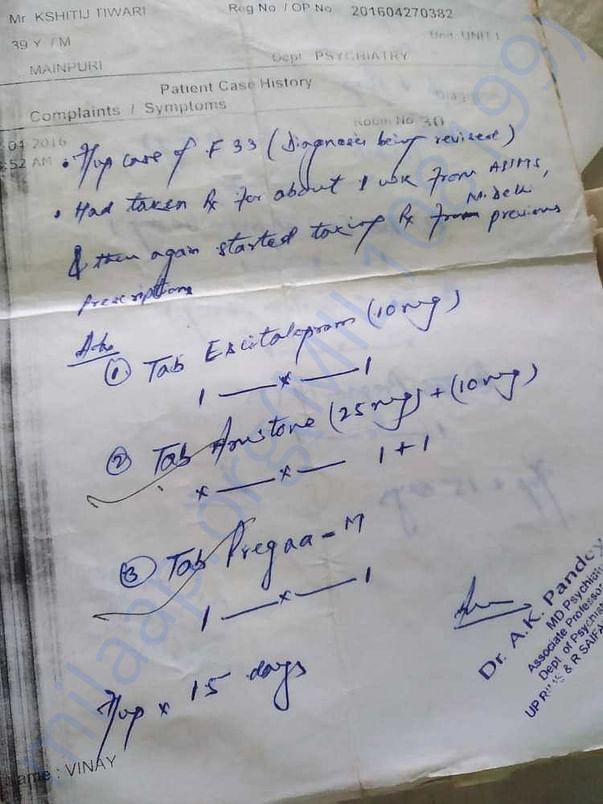 Mr KSHITIJ TIWARI Reg No / OP No 201604270382
39 Y / M Unit UNIT I
MAINPURI Dept PSYCHIATRY
Patient Case History
Complaints / Symptoms
Room No 30
04 2016
:52 AM • F/up case of F 33 (Diagnosis being revised)
• Had taken Rx for about 1 wk from AIIMS, N. Delhi
& then again started taking Rx from previous
prescriptions
Adv
① Tab Escitalopram (10mg)
1 — x — 1
② Tab (25mg) + (10mg)
x — x — 1+1
③ Tab Pregaa-M
1 — x — 1
F/up x 15 days
Dr. A.K. Pandey
MD Psychiat
Associate Professo
Dept. of Psychiat
& R SAIFA
ame : VINAY
milaap.org